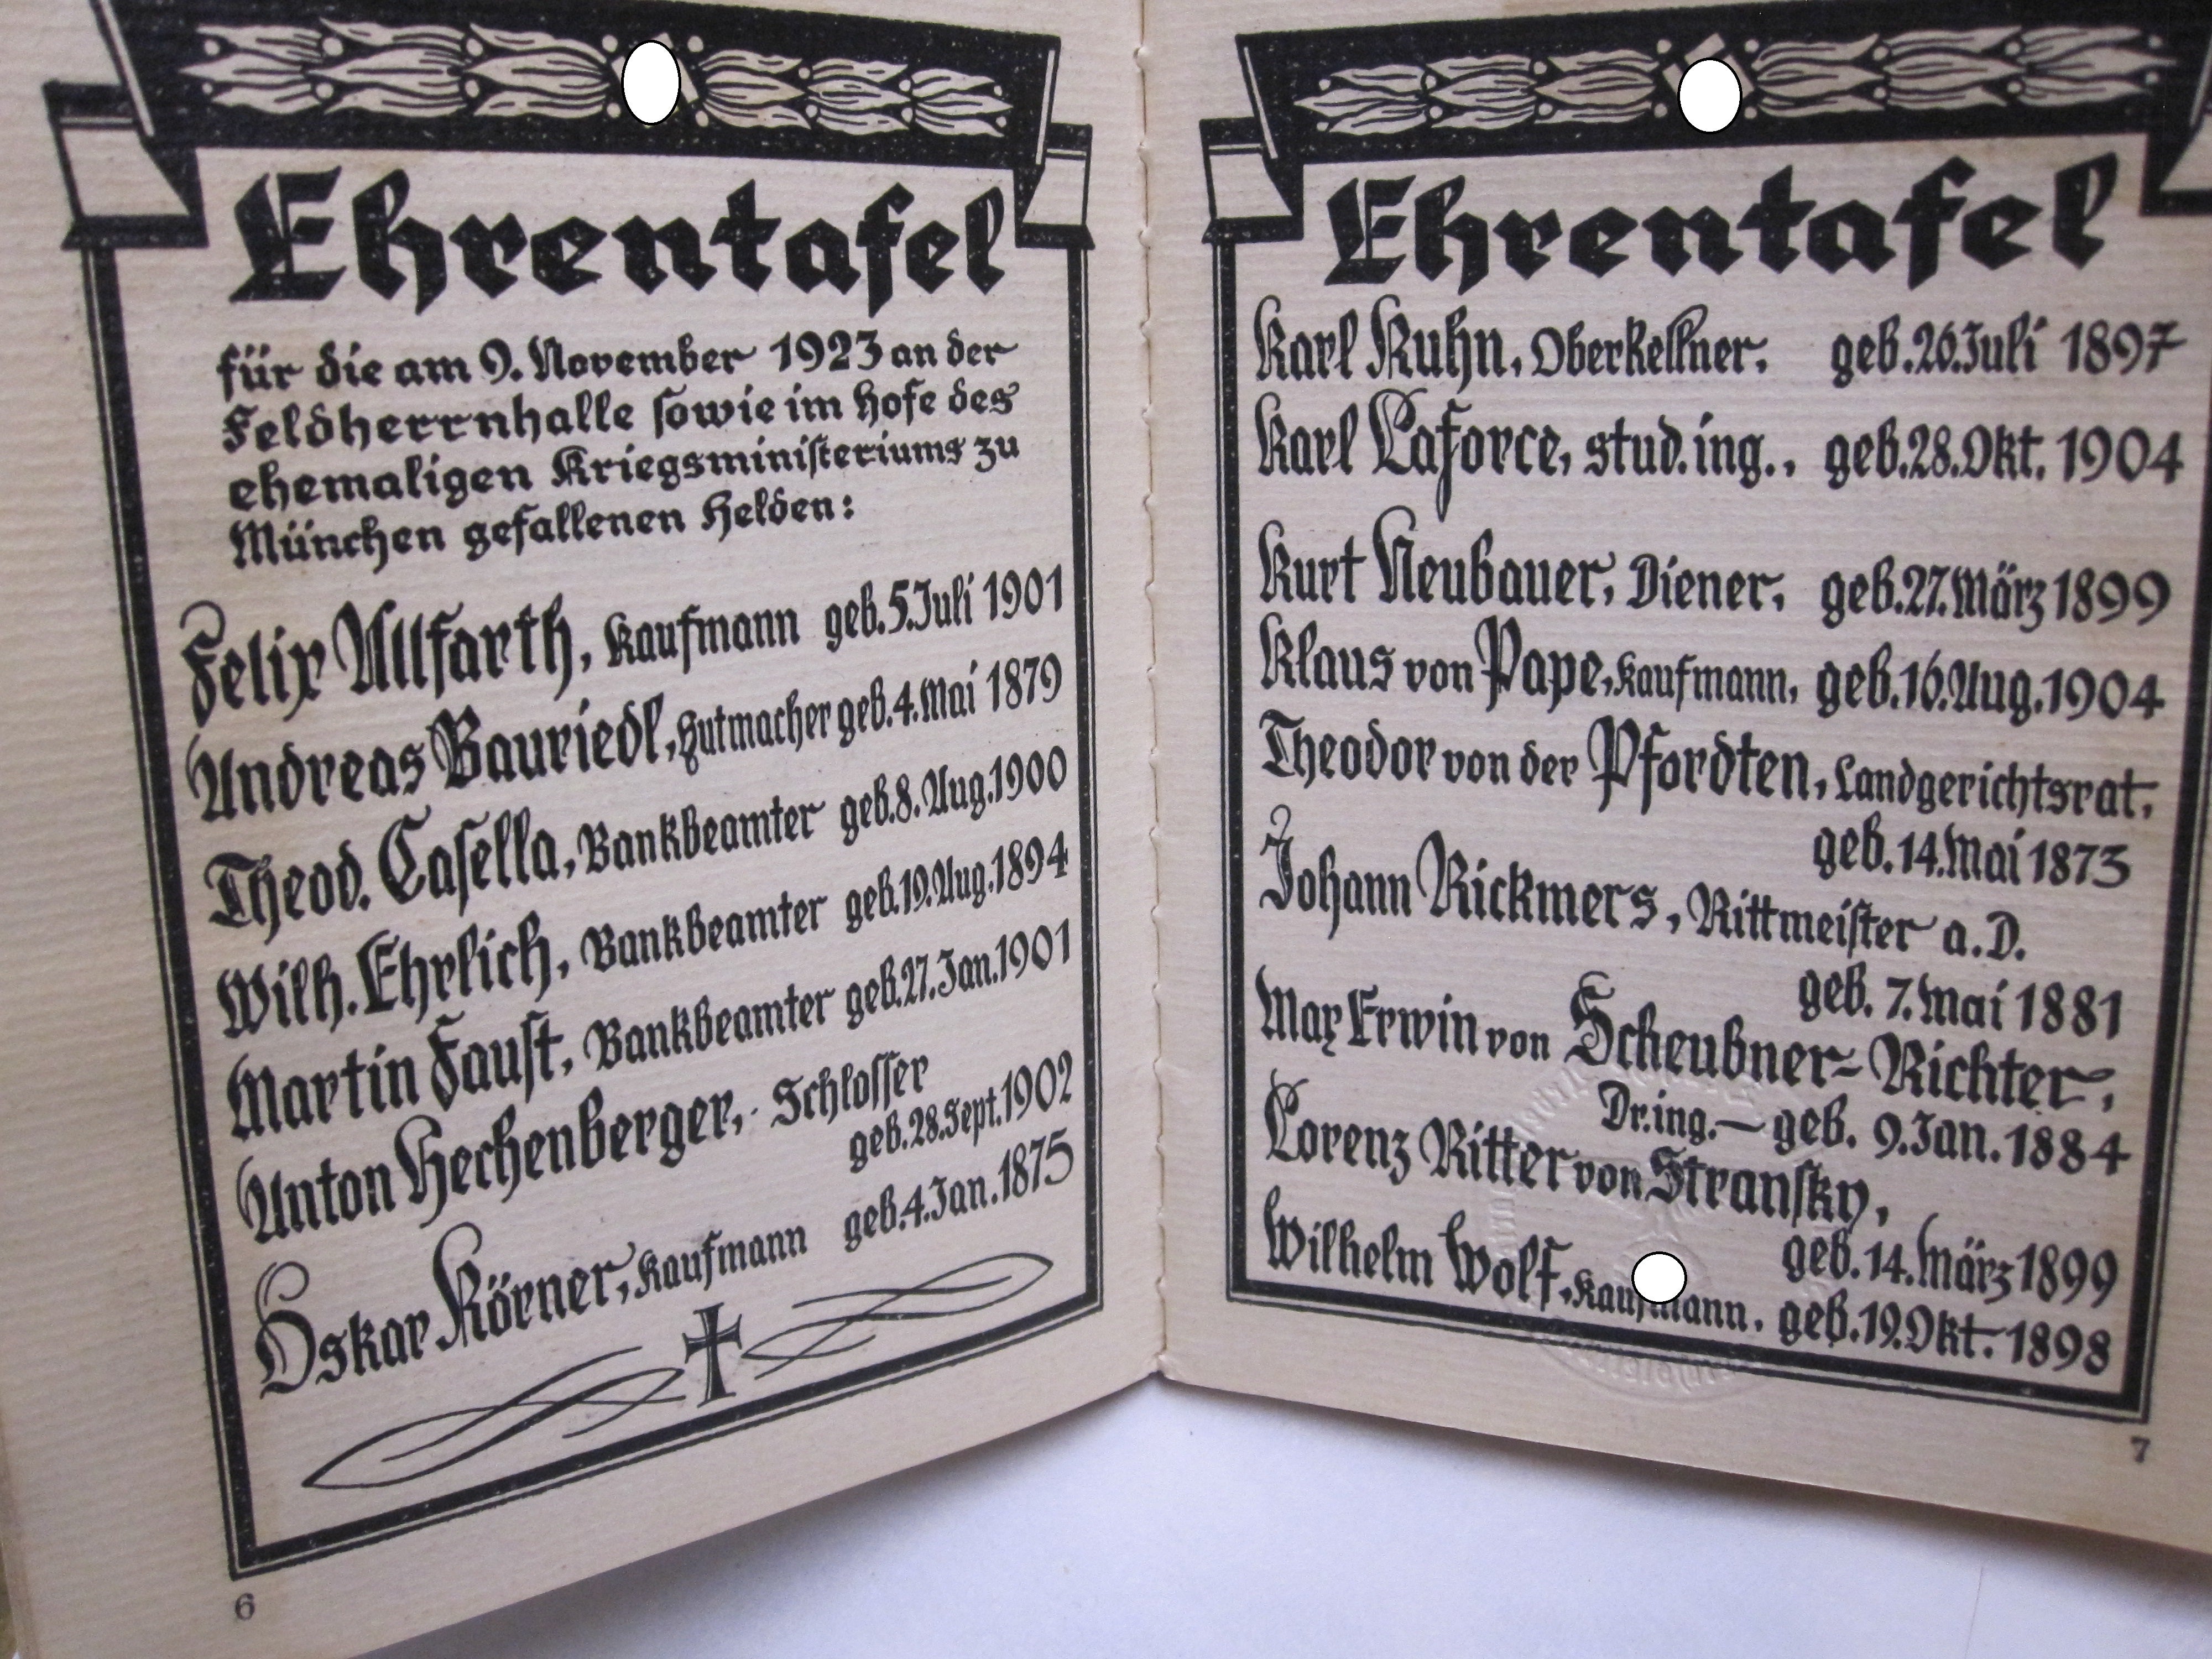 Ehrentafel
für die am 9. November 1923 an der
Feldherrnhalle sowie im Hofe des
ehemaligen Kriegsministeriums zu
München gefallenen Helden:
Felix Allfarth, Kaufmann geb. 5. Juli 1901
Andreas Bauriedl, Hutmacher geb. 4. Mai 1879
Theod. Casella, Bankbeamter geb. 8. Aug. 1900
Wilh. Ehrlich, Bankbeamter geb. 19. Aug. 1894
Martin Faust, Bankbeamter geb. 27. Jan. 1901
Anton Hechenberger, Schlosser
geb. 28. Sept. 1902
Oskar Körner, Kaufmann geb. 4. Jan. 1875
6
Ehrentafel
Karl Kuhn, Oberkellner, geb. 26. Juli 1897
Karl Laforce, stud. ing., geb. 28. Okt. 1904
Kurt Neubauer, Diener, geb. 27. März 1899
Klaus von Pape, Kaufmann, geb. 16. Aug. 1904
Theodor von der Pfordten, Landgerichtsrat,
geb. 14. Mai 1873
Johann Rickmers, Rittmeister a. D.
geb. 7. Mai 1881
Max Erwin von Scheubner-Richter,
Dr. ing. — geb. 9. Jan. 1884
Lorenz Ritter von Stransky,
geb. 14. März 1899
Wilhelm Wolf, Kaufmann, geb. 19. Okt. 1898
7